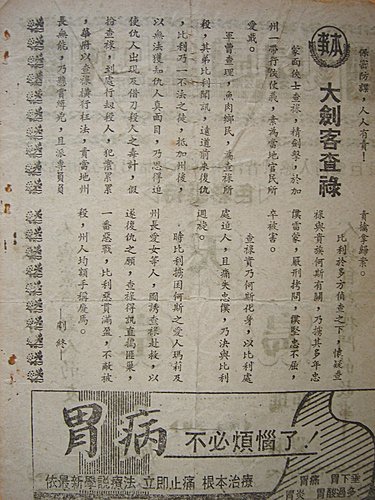 保密防諜，人人有責！
本事
大劍客查祿
蒙面俠士查祿，精劍學，於加
州一帶行俠仗義，素為當地官民所
愛戴。
軍曹查理，魚肉鄉民，為查祿所
殺，其弟比利聞訊，遠道前來復仇
，比利乃一不法之徒，抵加州後，
以無法獲知仇人真面目，乃思得迫
使仇人出現及借刀殺人之毒計，假
扮查祿，到處行劫殺人，犯案累累
，舉州以查祿橫行枉法，責當地州
長無能，乃懸賞緝兇，且派專員負
責擒拿歸案。
比利於多方偵查之下，懷疑查
祿與貴族何斯有關，乃擄其多年忠
僕雷蒙，嚴刑拷問，僕堅忠不屈，
卒被害。
查祿實乃何斯化身，以比利處
處迫人，且痛失忠僕，乃決與比利
週旋。
時比利擄因何斯之愛人瑪莉及
州長愛女等人，圖誘查祿赴救，以
遂復仇之願，查祿得訊直搗匪巢，
一番惡戰，比利惡貫滿盈，不敵被
殺，州人均額手稱慶焉。
—劇終—
胃病 不必煩惱了！
依最新學說療法·立即止痛 根本治療
胃痛 胃下垂
胃炎 胃酸過多